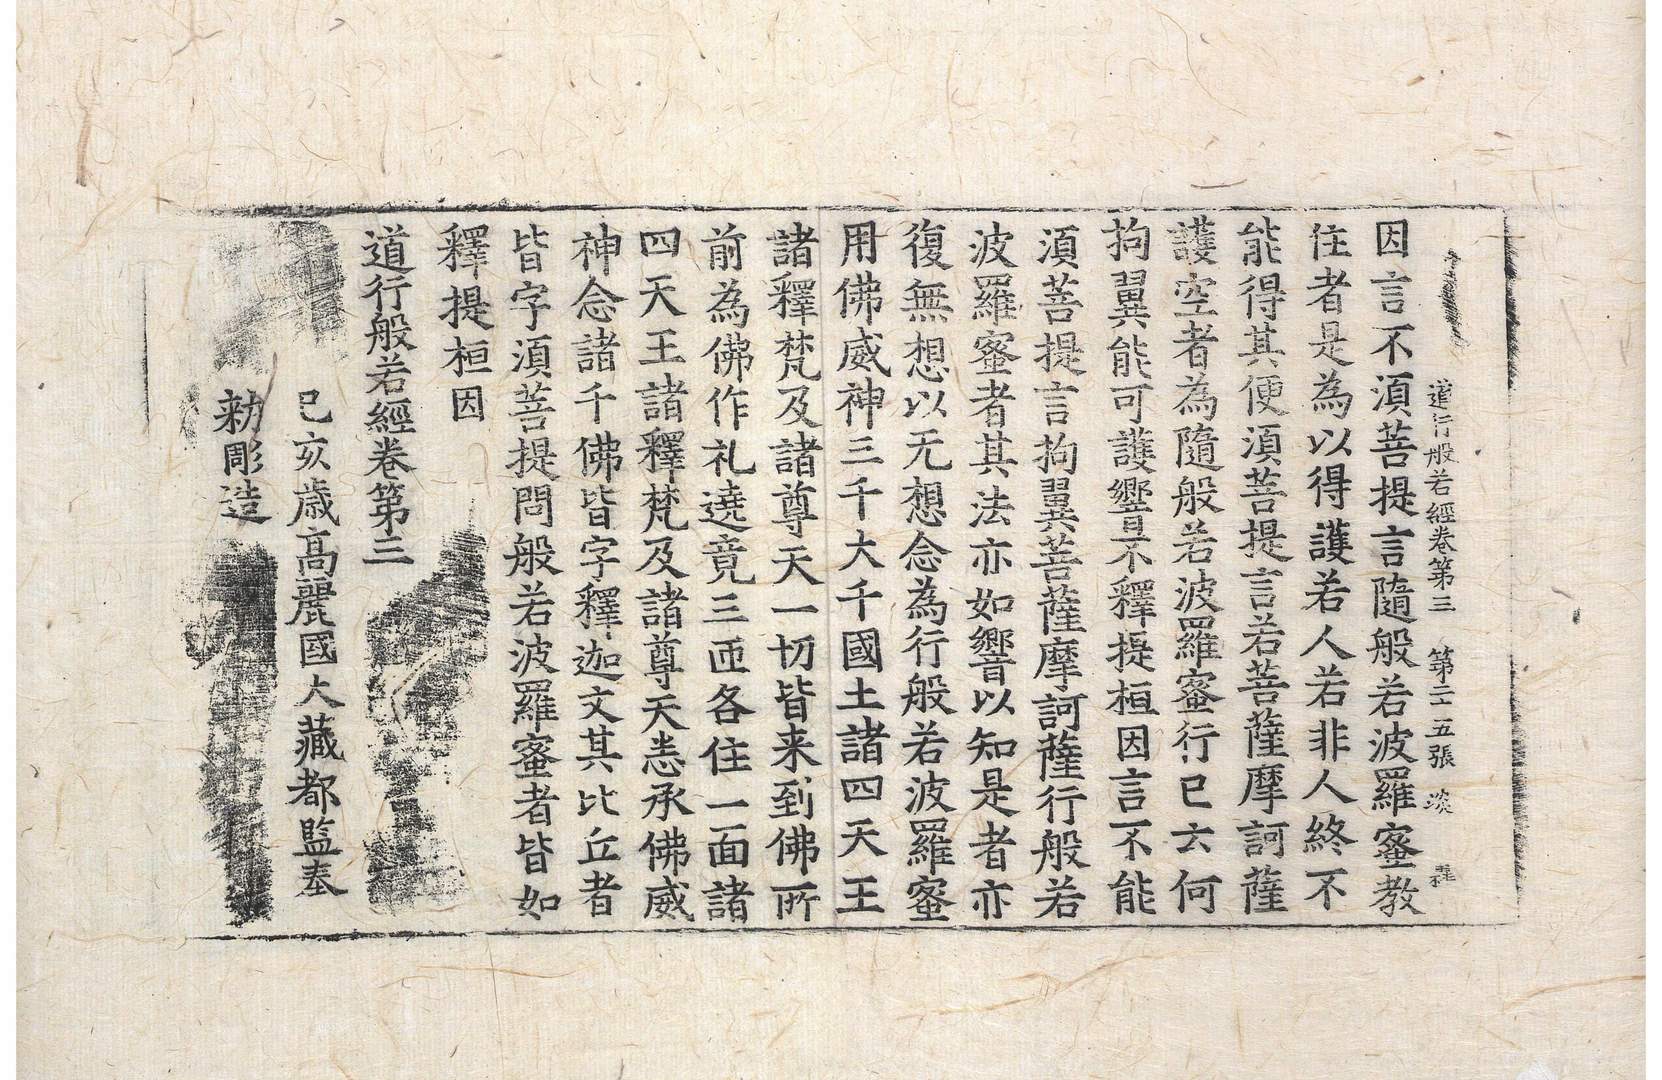 道行般若經卷第三　第二十五張　淡
因言不須菩提言隨般若波羅蜜教
住者是為以得護若人若非人終不
能得其便須菩提言若菩薩摩訶薩
護空者為隨般若波羅蜜行已云何
拘翼能可護響不釋提桓因言不能
須菩提言拘翼菩薩摩訶薩行般若
波羅蜜者其法亦如響以知是者亦
復無想以无想念為行般若波羅蜜
用佛威神三千大千國土諸四天王
諸釋梵及諸尊天一切皆来到佛所
前為佛作礼遶竟三匝各住一面諸
四天王諸釋梵及諸尊天悉承佛威
神念諸千佛皆字釋迦文其比丘者
皆字須菩提問般若波羅蜜者皆如
釋提桓因
道行般若經卷第三
己亥歳高麗國大藏都監奉
勑彫造